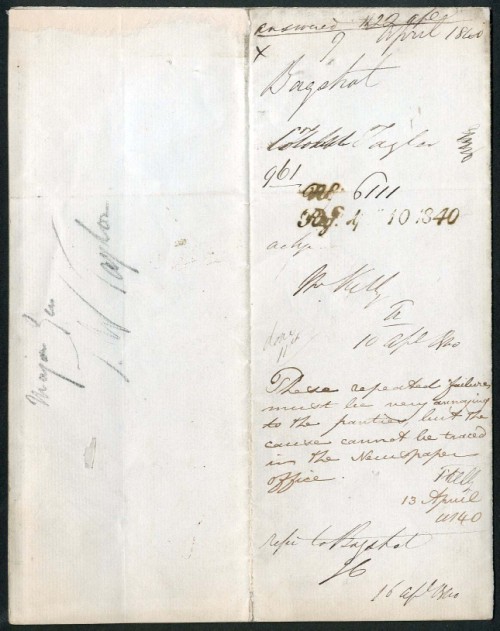 answered
9 April 1840
x
Bagshot
Taylor
961
6111
10 1840
Mr Kelly
10 apl 1840
These repeated failures
must be very annoying
to the parties, but the
cause cannot be traced
in the Newspaper
office.
13 April
1840
refer to Bagshot
16 apl 1840
Major Gen
J. W Taylor